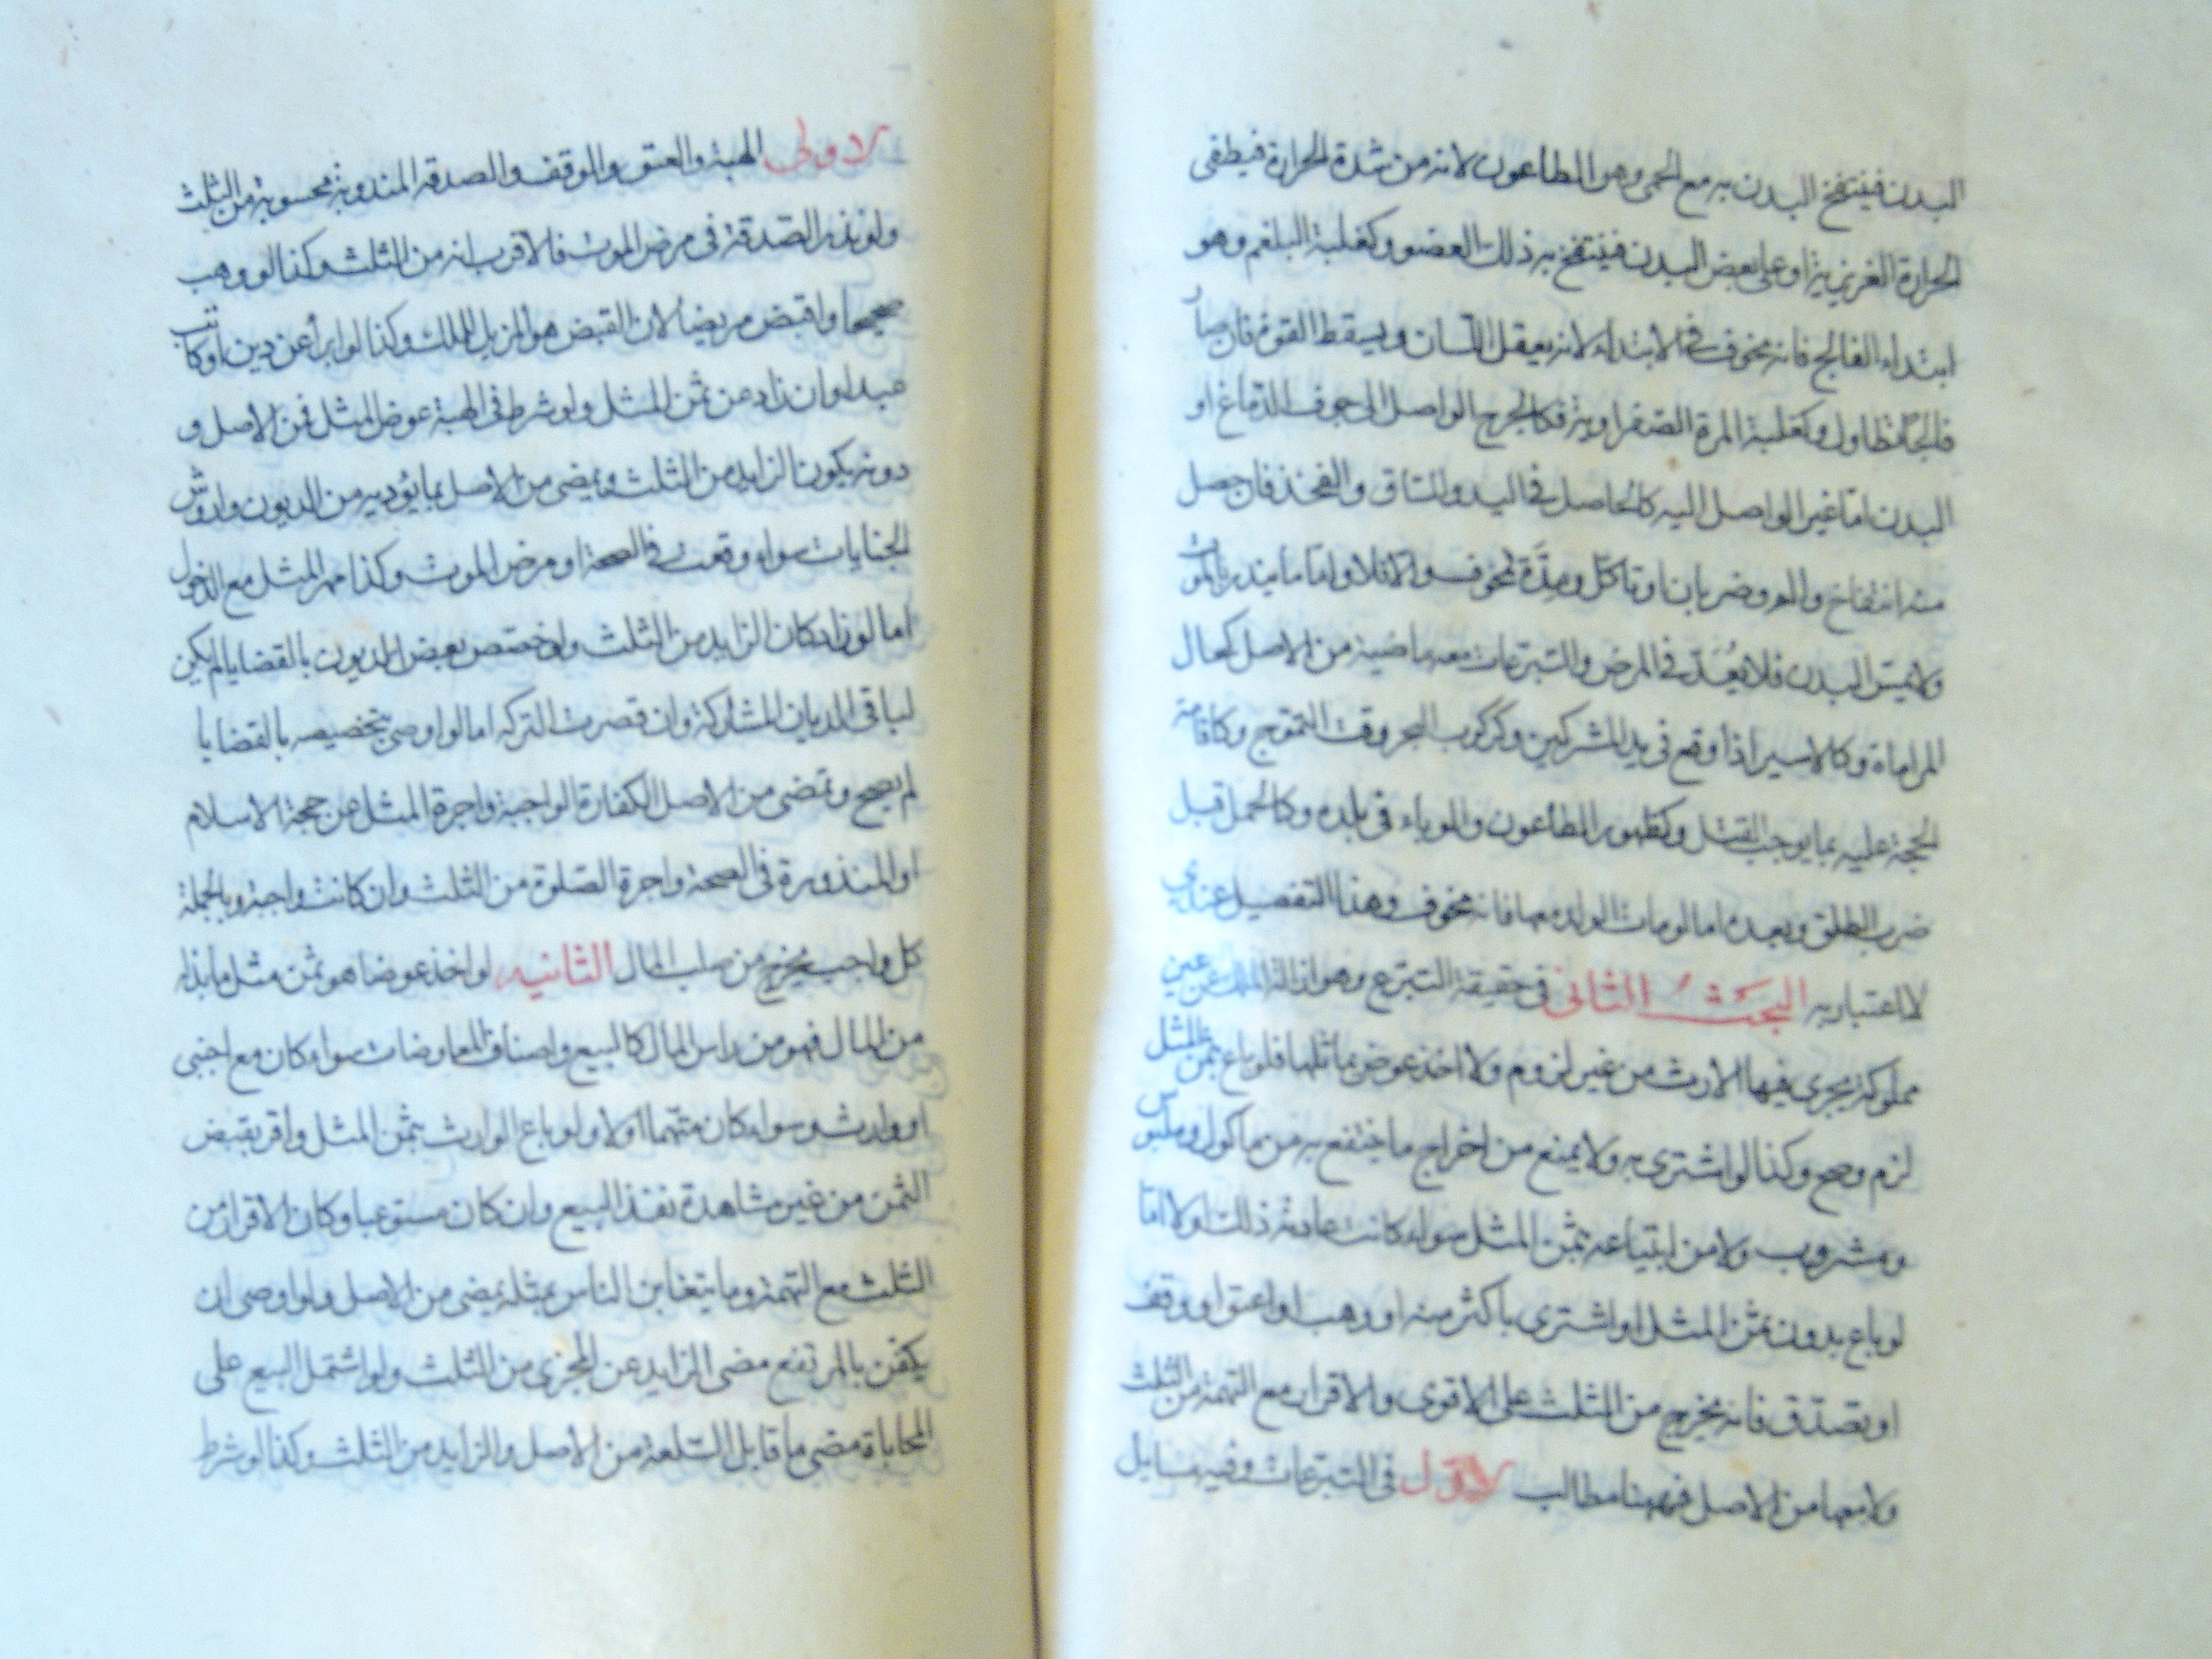 البدن فينتفخ البدن به مع الحمى وهو الطاعون لانه من شدة الحرارة فيطفى
الحرارة الغريزية او على بعض البدن فينتفخ به ذلك العضو وكغلبة البلغم وهو
ابتداء الفالج فانه مخوف في الابتداء لانه يعقل اللسان ويسقط القوة فان صار
فالجا تطاول وكغلبة المرة الصفراوية فكالجرح الواصل الى جوف الدماغ او
البدن اما غير الواصل اليه كالحاصل في اليد والساق والفخذ فان حصل
منه انتفاخ والم وضربان او تاكل ومِدَّة فمخوف والا فلا واما ما ينذر بالموت
ولا يمس البدن فلا يُعَدّ في المرض والتبرعات معه ماضية من الاصل كحال
المراماة وكالاسير اذا وقع في يد المشركين وكركوب البحر وقت التموج وكاقامة
الحجة عليه بما يوجب القتل وكظهور الطاعون والوباء في بلده وكالحمل قبل
ضرب الطلق وبعده اما لو مات الولد معها فانه مخوف وهذا التفصيل عندي
لا اعتبار به البحث الثاني في حقيقة التبرع وهو ازالة الملك عن عين
مملوكة يجرى فيها الارث من غير لزوم ولا اخذ عوض يماثلها فلو باع بثمن المثل
لزم وصح وكذا لو اشترى به ولا يمنع من اخراج ما ينتفع به من ماكول وملبوس
ومشروب ولا من ابتياعه بثمن المثل سواء كانت عادته ذلك او لا اما
لو باع بدون ثمن المثل او اشترى باكثر منه او وهب او اعتق او وقف
او تصدق فانه يخرج من الثلث على الاقوى والاقرار مع التهمة من الثلث
ولا معها من الاصل فههنا مطالب الاول في التبرعات وفيه مسايل
الاولى الهبة والعتق والوقف والصدقة المندوبة محسوبة من الثلث
ولو نذر الصدقة في مرض الموت فالاقرب انه من الثلث وكذا لو وهب
صحيحا واقبض مريضا لان القبض هو المزيل للملك وكذا لو ابرأ عن دين او كاتب
عبدا وان زاد عن ثمن المثل ولو شرط في الهبة عوض المثل فمن الاصل و
دونه يكون الزايد من الثلث ويمضى من الاصل بما يؤديه من الديون واروش
الجنايات سواء وقعت في الصحة او مرض الموت وكذا مهر المثل مع الدخول
اما لو زاد كان الزايد من الثلث ولو خصص بعض الديون بالقضايا لم يكن
لباقى الديان المشاركة وان قصرت التركه اما لو اوصى بتخصيصه بالقضايا
لم يصح وتمضى من الاصل الكفارة الواجبة واجرة المثل عن حجة الاسلام
او المنذورة في الصحة واجرة الصلوة من الثلث وان كانت واجبة وبالجملة
كل واجب يخرج من صلب المال الثانيه لو اخذ عوضا هو ثمن مثل ما بذله
من المال فهو من راس المال كالبيع واصناف المعاوضات سواء كان مع اجنبى
او وارث وسواء كان متهما او لا ولو باع الوارث بثمن المثل واقر بقبض
الثمن من غير مشاهدة نفذ البيع وان كان مستوعبا وكان الاقرار من
الثلث مع التهمة وما يتغابن الناس بمثله يمضى من الاصل ولو اوصى ان
يكفن بالمرتفع مضى الزايد عن المجزى من الثلث ولو اشتمل البيع على
المحاباة مضى ما قابل السلعة من الاصل والزايد من الثلث وكذا لو شرط